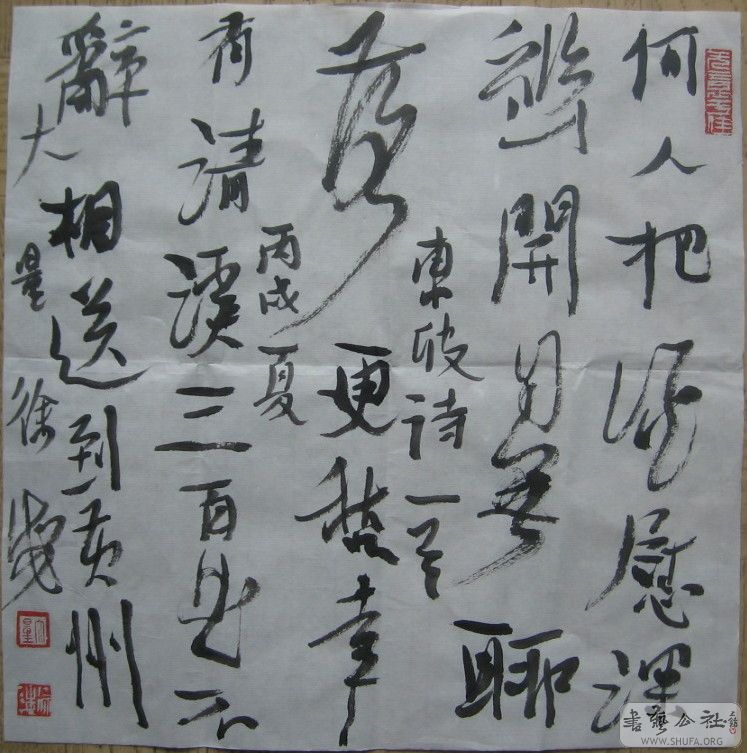 何人把酒慰深
幽開自無聊
落更愁幸
有清溪三百曲不
辭相送到黄州
東坡诗一首
丙戌夏
大量徐
書藝公社
WWW.SHUFA.ORG